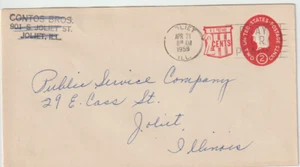 CONTOS BROS.
901 S. JOLIET ST.
JOLIET, ILL
JOLIET
APR 21
AM
1959
ILL.
2 CENTS
UNITED STATES POSTAGE
2
Public Service Company
29 E. Cass St.
Joliet
Illinois